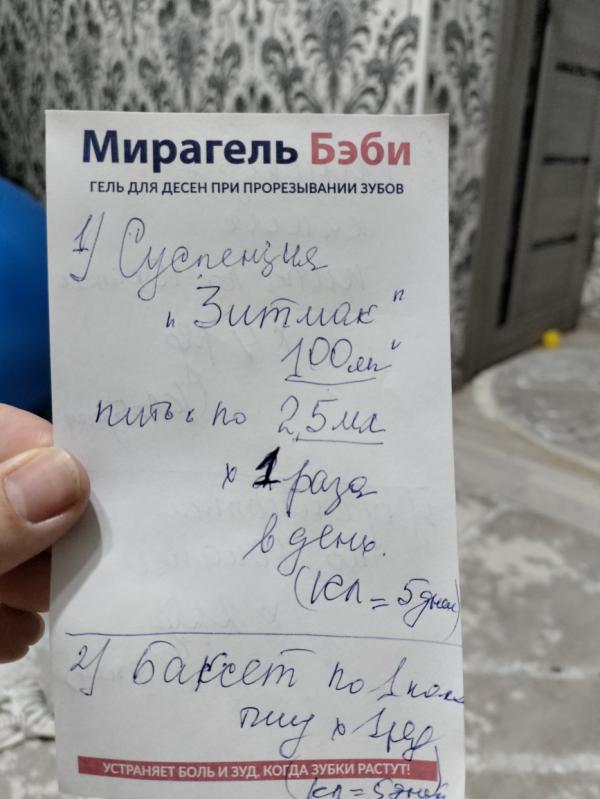 Мирагель Бэби
ГЕЛЬ ДЛЯ ДЕСЕН ПРИ ПРОРЕЗЫВАНИИ ЗУБОВ
1) Суспензия
"Зитмак"
100мл"
пить по 2,5мл
х 1 раза
в день.
(Кл = 5 дней)
2) Баксет по 1 пол
пиу х 1 р/д
УСТРАНЯЕТ БОЛЬ И ЗУД, КОГДА ЗУБКИ РАСТУТ!
(кл = 5 дней